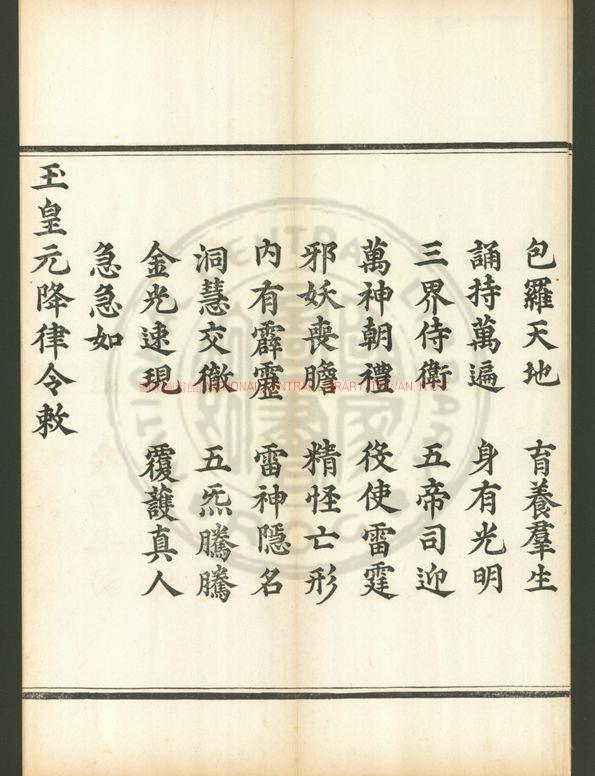 包羅天地　育養羣生
誦持萬遍　身有光明
三界侍衛　五帝司迎
萬神朝禮　役使雷霆
邪妖喪膽　精怪亡形
內有霹靂　雷神隱名
洞慧交徹　五炁騰騰
金光速現　覆護真人
急急如
玉皇元降律令敕
NATIONAL CENTRAL LIBRARY, TAIWAN, R.O.C.